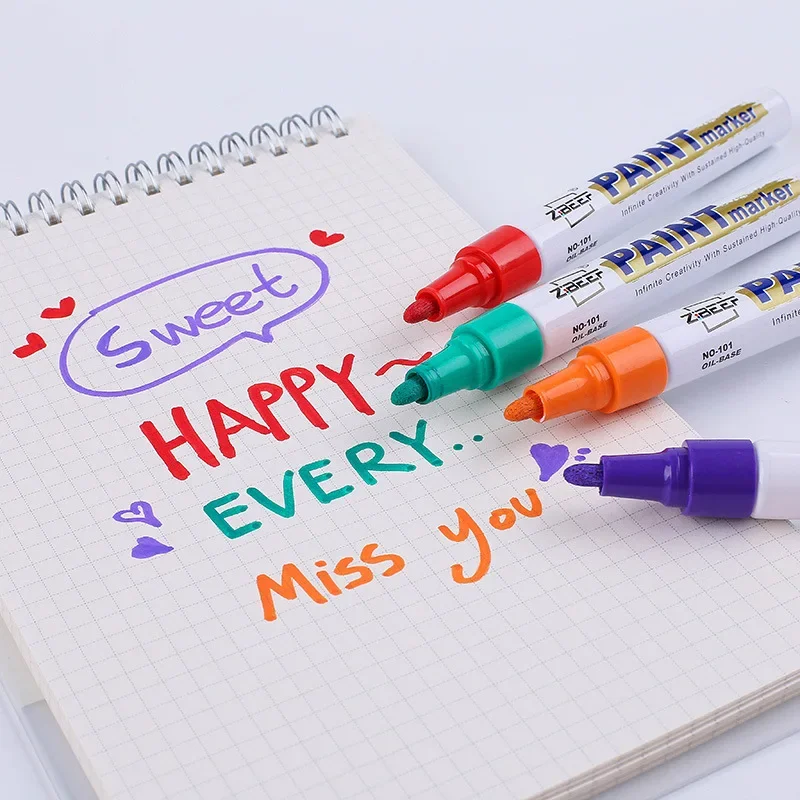 Sweet
HAPPY~
EVERY..
Miss You
ZiBEER
PAINT marker
Infinite Creativity With Sustained High-Quality
NO-101
OIL-BASE
ZiBEER
PAINT marker
Infinite Creativity With Sustained High-Quality
NO-101
OIL-BASE
ZiBEER
PA
Infinite
NO-101
OIL-BASE